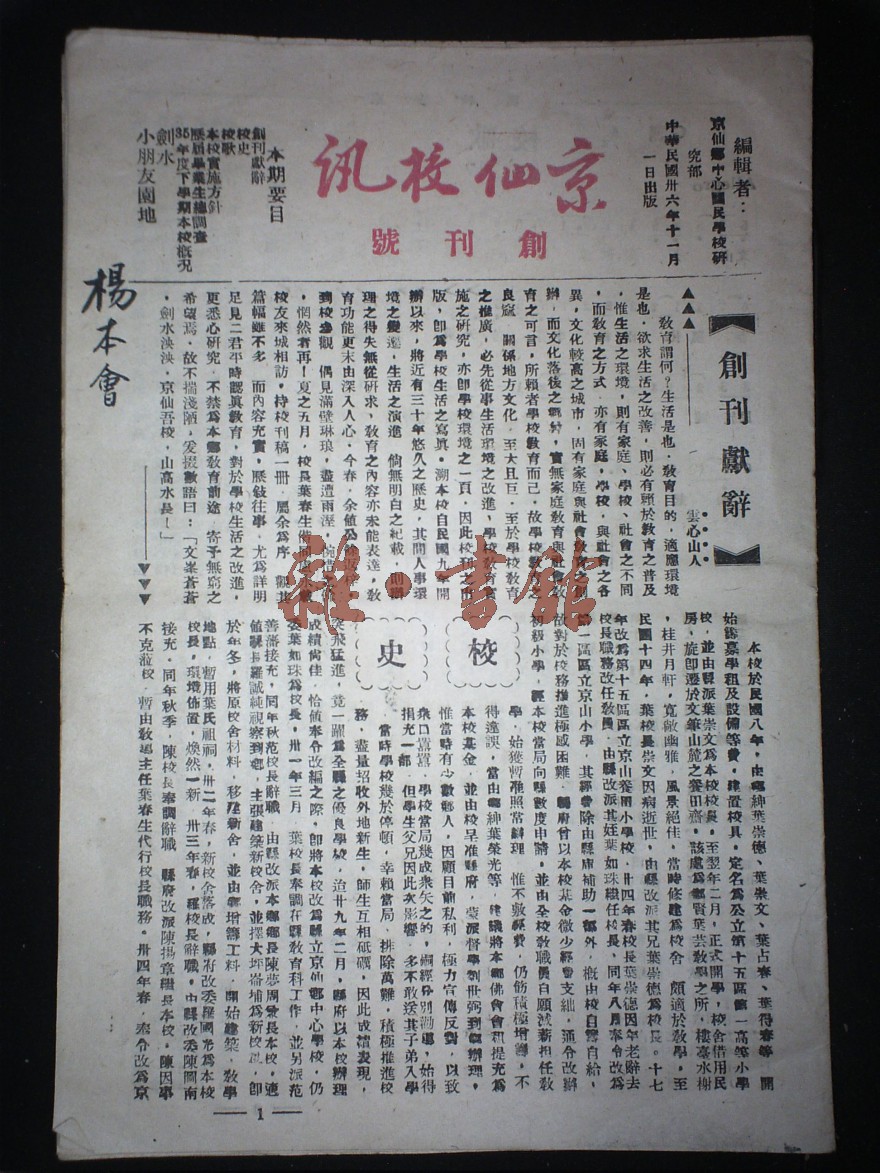 編輯者：
京仙鄉中心國民學校研
究部
中華民國卅六年十一月
一日出版
京仙校訊
創刊號
本期要目
創刊獻辭
校史
校歌
本校實施方針
歷屆畢業生總調查
35年度下學期本校概況
劍水
小朋友園地
楊本會
創刊獻辭
雲心山人
▲▲▲
教育謂何？生活是也．教育目的，適應環境
是也．欲求生活之改善，則必有賴於教育之普及
．惟生活之環境，則有家庭、學校、社會之不同
，而教育之方式．亦有家庭，學校，與社會之各
異，文化較高之城市，固有家庭與社會教育之創
辦．而文化落後之鄉村，實無家庭教育與社會教
育之可言，所賴者學校教育而已．故學校教育之
良窳．關係地方文化．至大且巨．至於學校教育
之推廣，必先從事生活環境之改進．學校教育實
施之研究，亦即學校環境之一頁，因此校刊之出
版，即為學校生活之寫真．溯本校自民國九年開
辦以來，將近有三十年悠久之歷史，其間人事環
境之變遷，生活之演進．倘無明白之紀載，則辦
理之得失無從研求，教育之內容亦未能表達，教
育功能更末由深入人心．今春，余值公餘
到校參觀．偶見滿壁琳琅，盡遭雨溼，
，惘然者再！夏之五月，校長葉春生偕
校友來城相訪，持校刊稿一冊．屬余為序．觀其
篇幅雖不多．而內容充實，歷敍往事．尤為詳明
足見二君平時認真教育，對於學校生活之改進，
更悉心研究．不禁為本鄉教育前途．寄予無窮之
希望焉．故不揣淺陋，爰掇數語曰：「文峯蒼蒼
，劍水泱泱，京仙吾校，山高水長！」
▼▼▼
校史
本校於民國八年，由鄉紳葉崇德、葉崇文、葉占春、葉得春等．開
始籌募學租及設備等費，建置校具，定名為公立第十五區第一高等小學
校，並由縣派葉崇文為本校校長，至翌年二月，正式開學，校舍借用民
房，旋即遷於文筆山麓之養田齋，該處為鄉賢葉芸教學之所，樓臺水榭
，桂井月軒，寬敞幽雅，風景絕佳，當時修建為校舍．頗適於教學，至
民國十四年，葉校長崇文因病逝世，由縣改派其兄葉崇德為校長。十七
年改為第十五區區立京山養田小學校，廿四年春校長葉崇德因年老辭去
校長職務改任教員．由縣改派其姪葉如珠繼任校長，同年八月奉令改為
第一區區立京山小學，其經費除由縣庫補助一部外，概由校自籌自給，
故對於校務推進極感困難．縣府曾以本校基金微少經費支絀，通令改辦
初級小學，經本校當局向縣數度申請，並由全校教職員自願減薪担任教
學，始獲暫准照常辦理．惟不敷經費，仍飭積極增籌，不
得違誤，當由鄉紳葉榮光等，建議將本鄉佛會會租提充為
本校基金，並由校呈准縣府，蒙派督學劉世弼到鄉辦理，
惟當時有少數鄉人，因顧目前私利，極力宣傳反對，以致
衆口囂囂，學校當局幾成衆矢之的，嗣經分別勸導，始得
捐充一部．但學生父兄因此次影響．多不敢送其子弟入學
．當時學校幾於停頓，幸賴當局．排除萬難，積極推進校
務，盡量招收外地新生，師生互相砥礪，因此成績表現，
突飛猛進，竟一躍為全縣之優良學校，迨廿九年二月，縣府以本校辦理
成績尚佳．恰值奉令改編之際，即將本校改為縣立京仙鄉中心學校，仍
委葉如珠為校長，卅一年三月．葉校長奉調在縣教育科工作，並另派范
善藩接充，同年秋范校長辭職．由縣改派本鄉鄉長陳夢周兼長本校，適
值縣長羅誠純視察到鄉，主張建築新校舍，並擇大坪崙埔為新校址，即
於年冬，將原校舍材料，移建新舍，並由鄉增籌工料．開始建築．教學
地點．暫用葉氏祖祠，卅二年春，新校舍落成，縣府改委羅國光為本校
校長，環境佈置，煥然一新．卅三年春，羅校長辭職，由縣改委陳圖南
接充．同年秋季，陳校長奉調辭職．縣府改派陳揚章繼長本校，陳因事
不克蒞校．暫由教導主任葉春生代行校長職務．卅四年春，奉令改為京
1
雜·書館